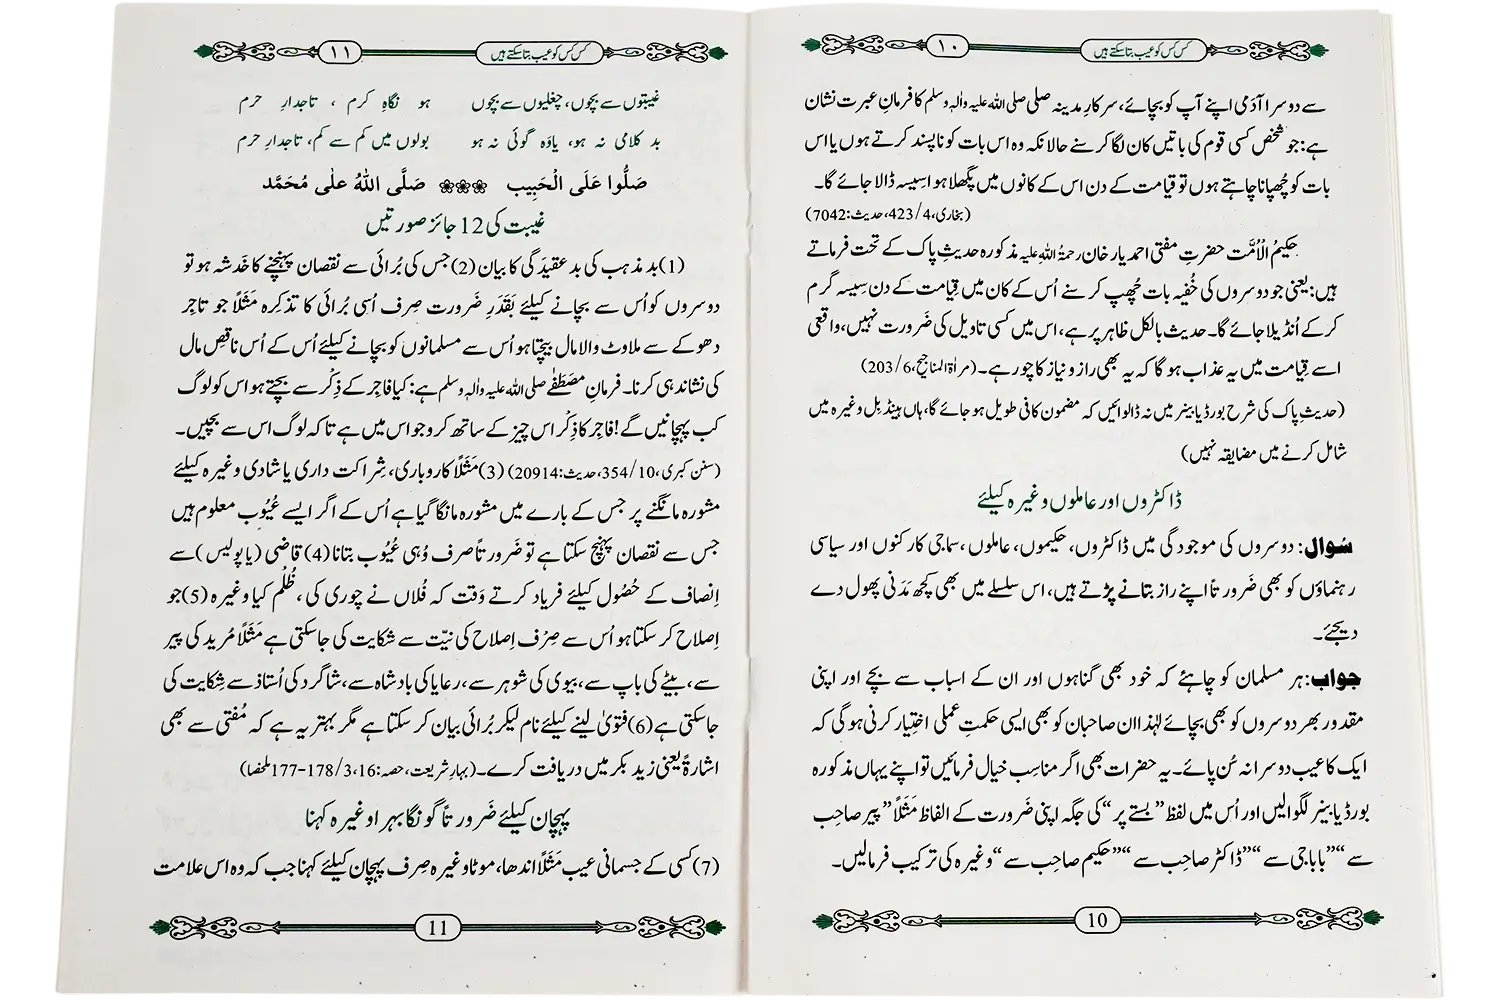 ۱۰
کس کس کو عیب بتا سکتے ہیں
سے دوسرا آدمی اپنے آپ کو بچائے، سرکارِ مدینہ صلی صلی اللہ علیہ واٰلہٖ وسلم کا فرمانِ عبرت نشان
ہے: جو شخص کسی قوم کی باتیں کان لگا کر سنے حالانکہ وہ اس بات کو ناپسند کرتے ہوں یا اس
بات کو چُھپانا چاہتے ہوں تو قیامت کے دن اس کے کانوں میں پگھلا ہوا سیسہ ڈالا جائے گا۔
(بخاری،4/423،حدیث:7042)
حکیمُ الْاُمَّت حضرتِ مفتی احمد یار خان رحمۃُ اللہِ علیہ مذکورہ حدیثِ پاک کے تحت فرماتے
ہیں: یعنی جو دوسروں کی خُفیہ بات چُھپ کر سنے اُس کے کان میں قِیامت کے دن سِیسہ گرم
کر کے اُنڈیلا جائے گا۔ حدیث بالکل ظاہر پر ہے، اس میں کسی تاویل کی ضَرورت نہیں، واقعی
اسے قِیامت میں یہ عذاب ہو گا کہ یہ بھی راز و نیاز کا چور ہے۔ (مراٰۃ المناجیح،6/203)
(حدیثِ پاک کی شرح بورڈ یا بینر میں نہ ڈالوائیں کہ مضمون کافی طویل ہو جائے گا، ہاں ہینڈ بِل وغیرہ میں
شامل کرنے میں مضایقہ نہیں)
ڈاکٹروں اور عاملوں وغیرہ کیلئے
سُوال: دوسروں کی موجودگی میں ڈاکٹروں، حکیموں، عاملوں، سماجی کارکنوں اور سیاسی
رہنماؤں کو بھی ضَرورتاً اپنے راز بتانے پڑتے ہیں، اس سلسلے میں بھی کچھ مَدَنی پھول دے
دیجئے۔
جواب: ہر مسلمان کو چاہئے کہ خود بھی گناہوں اور ان کے اسباب سے بچے اور اپنی
مقدور بھر دوسروں کو بھی بچائے لہٰذا ان صاحبان کو بھی ایسی حکمتِ عملی اختیار کرنی ہوگی کہ
ایک کا عیب دوسرا نہ سُن پائے۔ یہ حضرات بھی اگر مناسِب خیال فرمائیں تو اپنے یہاں مذکورہ
بورڈ یا بینر لگوا لیں اور اُس میں لفظ ”بستے پر“ کی جگہ اپنی ضَرورت کے الفاظ مَثَلاً ”پیر صاحِب
سے“ ”باباجی سے“ ”ڈاکٹر صاحِب سے“ ”حکیم صاحِب سے“ وغیرہ کی ترکیب فرمالیں۔
10
۱۱
کس کس کو عیب بتا سکتے ہیں
غیبتوں سے بچوں، چغلیوں سے بچوں ہو نگاہِ کرم ، تاجدارِ حرم
بد کلامی نہ ہو، یاوَہ گوئی نہ ہو بولوں میں کم سے کم، تاجدارِ حرم
صَلُّوا عَلَی الْحَبِیب صَلَّی اللّٰہُ عَلٰی مُحَمَّد
غیبت کی 12 جائز صورتیں
(1) بد مذہب کی بد عقیدگی کا بیان (2) جس کی بُرائی سے نقصان پہنچنے کا خَدشہ ہو تو
دوسروں کو اُس سے بچانے کیلئے بَقَدَرِ ضَرورت صِرف اُسی بُرائی کا تذکِرہ مَثَلاً جو تاجِر
دھوکے سے ملاوٹ والا مال بیچتا ہو اُس سے مسلمانوں کو بچانے کیلئے اُس کے اُس ناقِص مال
کی نشاندہی کرنا۔ فرمانِ مصطَفٰے صلی اللہ علیہ واٰلہٖ وسلم ہے: کیا فاجِر کے ذِکْر سے بچتے ہو اس کو لوگ
کب پہچانیں گے! فاجِر کا ذِکْر اس چیز کے ساتھ کرو جو اس میں ہے تاکہ لوگ اس سے بچیں۔
(سنن کبری،10/354،حدیث:20914) (3) مَثَلاً کاروباری، شِراکت داری یا شادی وغیرہ کیلئے
مشورہ مانگنے پر جس کے بارے میں مشورہ مانگا گیا ہے اُس کے اگر ایسے عُیُوب معلوم ہیں
جس سے نقصان پہنچ سکتا ہے تو ضَرورتاً صرف وُہی عُیُوب بتانا (4) قاضی (یا پولیس) سے
اِنصاف کے حُصُول کیلئے فریاد کرتے وَقت کہ فُلاں نے چوری کی ، ظُلْم کیا وغیرہ (5) جو
اِصلاح کر سکتا ہو اُس سے صِرْف اِصلاح کی نیّت سے شکایت کی جاسکتی ہے مَثَلاً مُرید کی پیر
سے، بیٹے کی باپ سے، بیوی کی شوہر سے، رِعایا کی بادشاہ سے، شاگرد کی اُستاذ سے شِکایت کی
جاسکتی ہے (6) فتویٰ لینے کیلئے نام لیکر بُرائی بیان کر سکتا ہے مگر بہتر یہ ہے کہ مُفتی سے بھی
اشارۃً یعنی زید بکر میں دریافت کرے۔ (بہارِ شریعت، حصہ:16،3/177-178 ملخصا)
پہچان کیلئے ضَرورتاً گونگا بہرا وغیرہ کہنا
(7) کسی کے جسمانی عیب مَثَلاً اندھا، موٹا وغیرہ صِرف پہچان کیلئے کہنا جب کہ وہ اس علامت
11